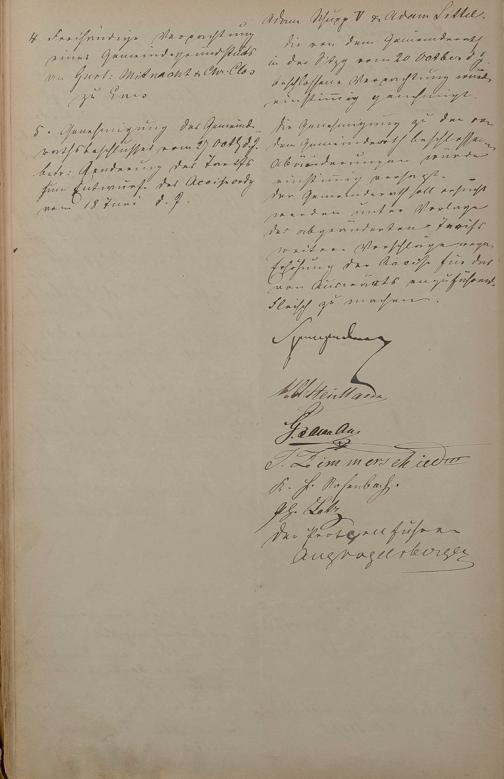 4 Freihändige Verpachtung
eines Gemeindegrundstücks
an Gust. Mitnacht & Chr. Clos
zu Ems
5. Genehmigung des Gemeinde-
rathsbeschlusses vom 27 Octb d. J.
betr: Aenderung des Tarifs
zum Entwurfe der Acciseordg
vom 18 Juni d. J.
Adam Schupp V & Adam Sittel.
Die von dem Gemeinderath
in der Sitzg vom 20 October d. J.
beschlossene Verpachtung wurde
einstimmig genehmigt.
Die Genehmigung zu den von
dem Gemeinderath beschlossenen
Abänderungen wurde
einstimmig versagt.
Der Gemeinderath soll ersucht
werden unter Vorlage
des abgeänderten Tarifs
weitere Vorschläge wegen
Erhöhung der Accise für das
von Auswärts einzuführende
Fleisch zu machen.
J. Zimmerschied
K. H. Rosenbach.
Der Protocollführer
Aug Vogelsberger